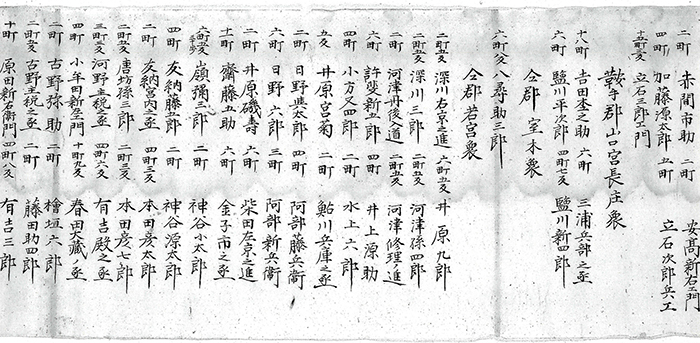 二町 赤間市助 二町 安髙新右エ門
四町 加藤源太郎 五町 立石次郎兵エ
立石三郎エ門
鞍手郡山口宮長庄衆
十八町 吉田杢之助 六町 三浦兵部之丞
六町 鹽川平次郎 鹽川新四郎
仝郡 室木衆
八尋助三郎
仝郡若宮衆
二町五反 深川右京之進 六町五反 井原九郎
二町五反 深川三郎 二町五反 河津孫四郎
二町 河津丹後入道 二町五反 河津修理ノ進
六町 許斐新五郎 四町 井上源助
四町 小方又四郎 二町 水上六郎
五反 井原宮菊 二町 鮎川兵庫之丞
二町 日野與太郎 三町 阿部藤兵衛
六町 日野六郎 三町 阿部新兵衛
二町 井原磯壽 六町 柴田左京之進
十町 齋藤五助 六町 金子市之丞
嶺彌三郎 二町 神谷小太郎
四町 友納藤五郎 二町 神谷源太郎
二町 友納宮内之丞 四町三反 本田彦太郎
二町五反 唐坊孫三郎 二町三反 本田彦七郎
三町五反 河野主税之丞 四町六反 有吉殿之丞
四町 小年田新左エ門 十町九反 春田大藏ノ丞
二町 古野弥助 二町 檜垣六郎
二町 古野主税之丞 二町 藤田助四郎
十町 原田新右衛門 四町八反 有吉三郎